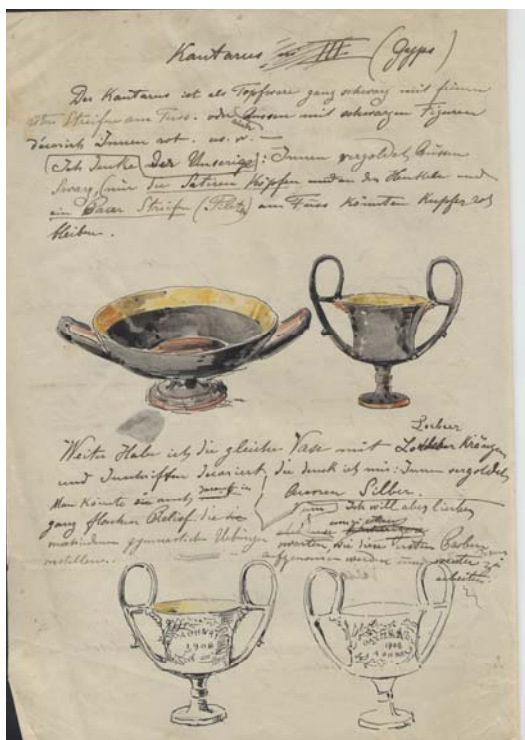 Kantarus III (Gyps)
Der Kantarus ist als Topfware ganz schwarz mit feinen
Streifen am Fuss. oder Aussen mit schwarzen Figuren
decorirt Innen rot. us. w. —
Ich denke der Unserige: Innen vergoldet Aussen
Swarz, (nur die Satiren Köpfen und an den Henkeln und
ein Paar Streifen (Filets) am Fuss könnten Kupfer rot
bleiben.
Weiter Habe ich die gleiche Vase mit Lorbeer Kränzen
und Inschriften decoriert die denk ich mir: Innen vergoldet
Aussen Silber.
Man könnte sie auch in
ganz flachen Relief die
gymnastische Übungen
vorstellen.
Ich will aber lieber
warten, wie diese ersten Proben
aufgenommen werden um weiter zu
arbeiten.
1908
1908